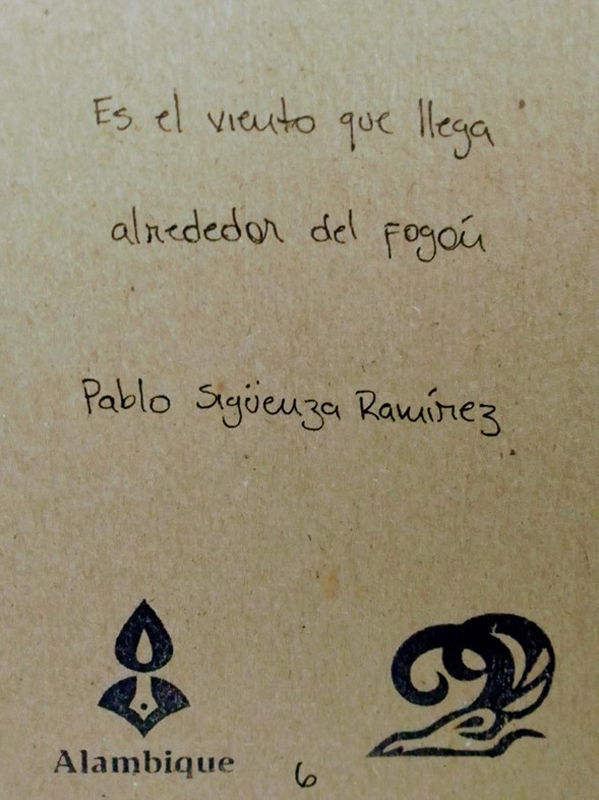 Es el viento que llega
alrededor del fogón
Pablo Sigüenza Ramírez
Alambique
6